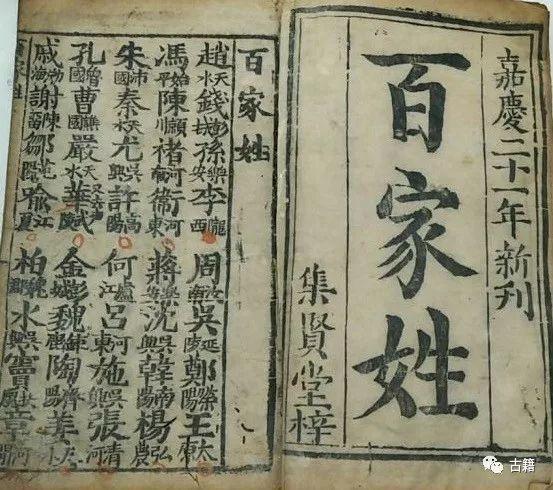 嘉慶二十一年新刊
百家姓
集賢堂梓
百家姓
趙天水錢彭城孫樂安李隴西周汝南吳延陵鄭滎陽王太
馮始平陳潁川褚河南衛河東蔣沈吳興韓南陽楊弘農
朱沛國秦天水尤吳興許高陽何廬江呂河東施吳興張清河
孔魯國曹譙國嚴天水華武陵金彭城魏陶濟陽姜天水
戚謝陳留鄒范陽喻江夏柏魏郡水吳興竇扶風章河間
百家姓
古籍